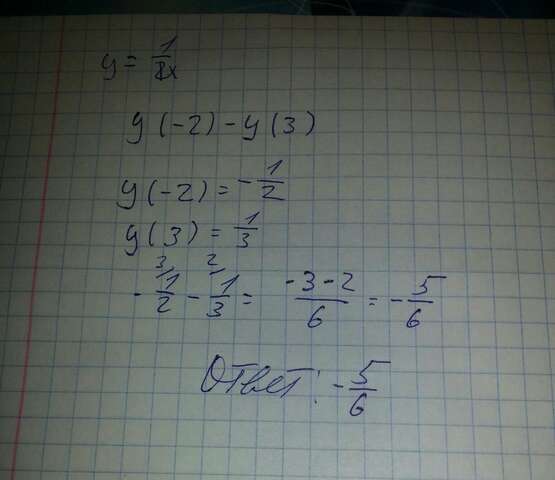 y = 1/x
y(-2) - y(3)
y(-2) = -1/2
y(3) = 1/3
-1/2 - 1/3 = (-3-2)/6 = -5/6
Ответ: -5/6